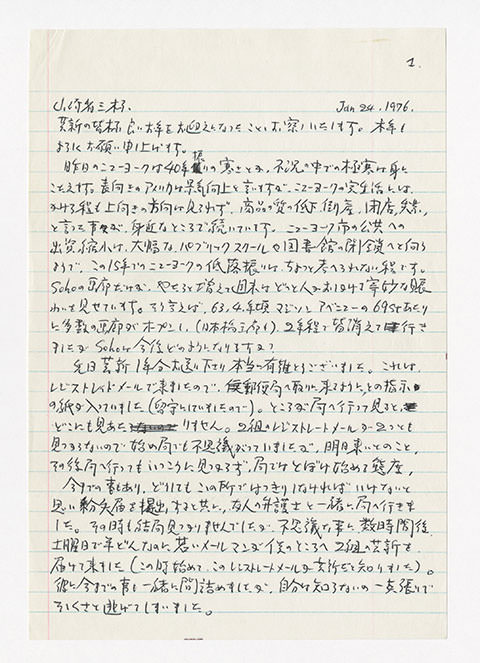 1.
Jan 24, 1976.
芸新の皆様 良い本年をお迎えになったことゝお察しいたします。本年も
よろしくお願い申上げます。
昨日のニューヨークは40年振りの寒さとか、不況の中での極寒は身に
こたえます。表向きのアメリカは景気向上と言いますが、ニューヨークの実生活には、
かけら程も上向きの方向は見られず、商品の質の低下、倒産、閉店、失業、
と言った事が、身近なところで続いています。ニューヨーク市の公共への
出資縮小は、大幅な、パブリックスクールや図書館の閉鎖へと向う
ようで、この15年でのニューヨークの低落振りは、ちょっと考へられない程です。
Sohoの画廊だけが、やたらと増えて週末はどっと人がおしかけて奇妙な賑
わいを見せています。そう言えば、63, 4年頃マジソンアベニューの69Stあたり
に多数の画廊がオープンし、(日本橋三份)、2年程で皆消えて行き
ましたが Sohoは今後どのようになりますか?
先日芸新1年分お送り下さり本当に有難とうございました。これは、
レジストレッドメールで来ましたので、郵便局へ取りに来るようにとの指示
の紙が入っていました(留守にしていましたので)。ところが局へ行って見ると、
どこにも見あたりません。2組のレジストレートメールが2つとも
見つからないので始め局でも不思議がっていましたが、明日来いとのこと、
その後局へ行ってもいっこうに見つからず、局ではとぼけ始める態度、
今までの事もあり、どうしてもこの所ではっきりしなければいけないと
思い紛失届を提出すると共に、友人の弁護士と一緒に局へ行きま
した。その時も結局見つかりませんでしたが、不思議な事に数時間後、
土曜日で半どんなのに若いメールマンが僕のところへ2組の芸新を
届けて来ました(この時始めて、このレジストレートメールが芸新だと知りました)。
彼に今までの事も一緒に問詰めましたが、自分は知らないの一点張りで
そゝくさと逃げてしまいました。